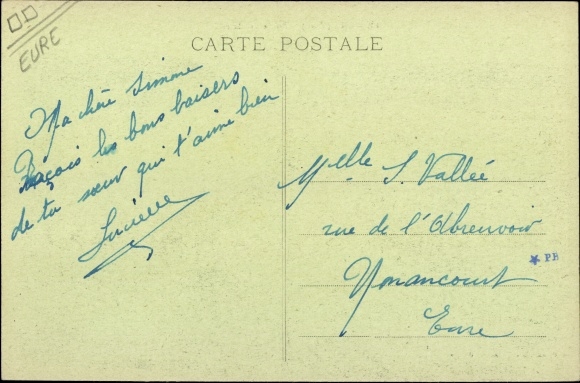 EURE
CARTE POSTALE
Ma chère Simone
Reçois les bons baisers
de ta sœur qui t'aime bien
Lucienne
Melle S. Vallée
rue de l'Abreuvoir
Nonancourt
Eure
* PB